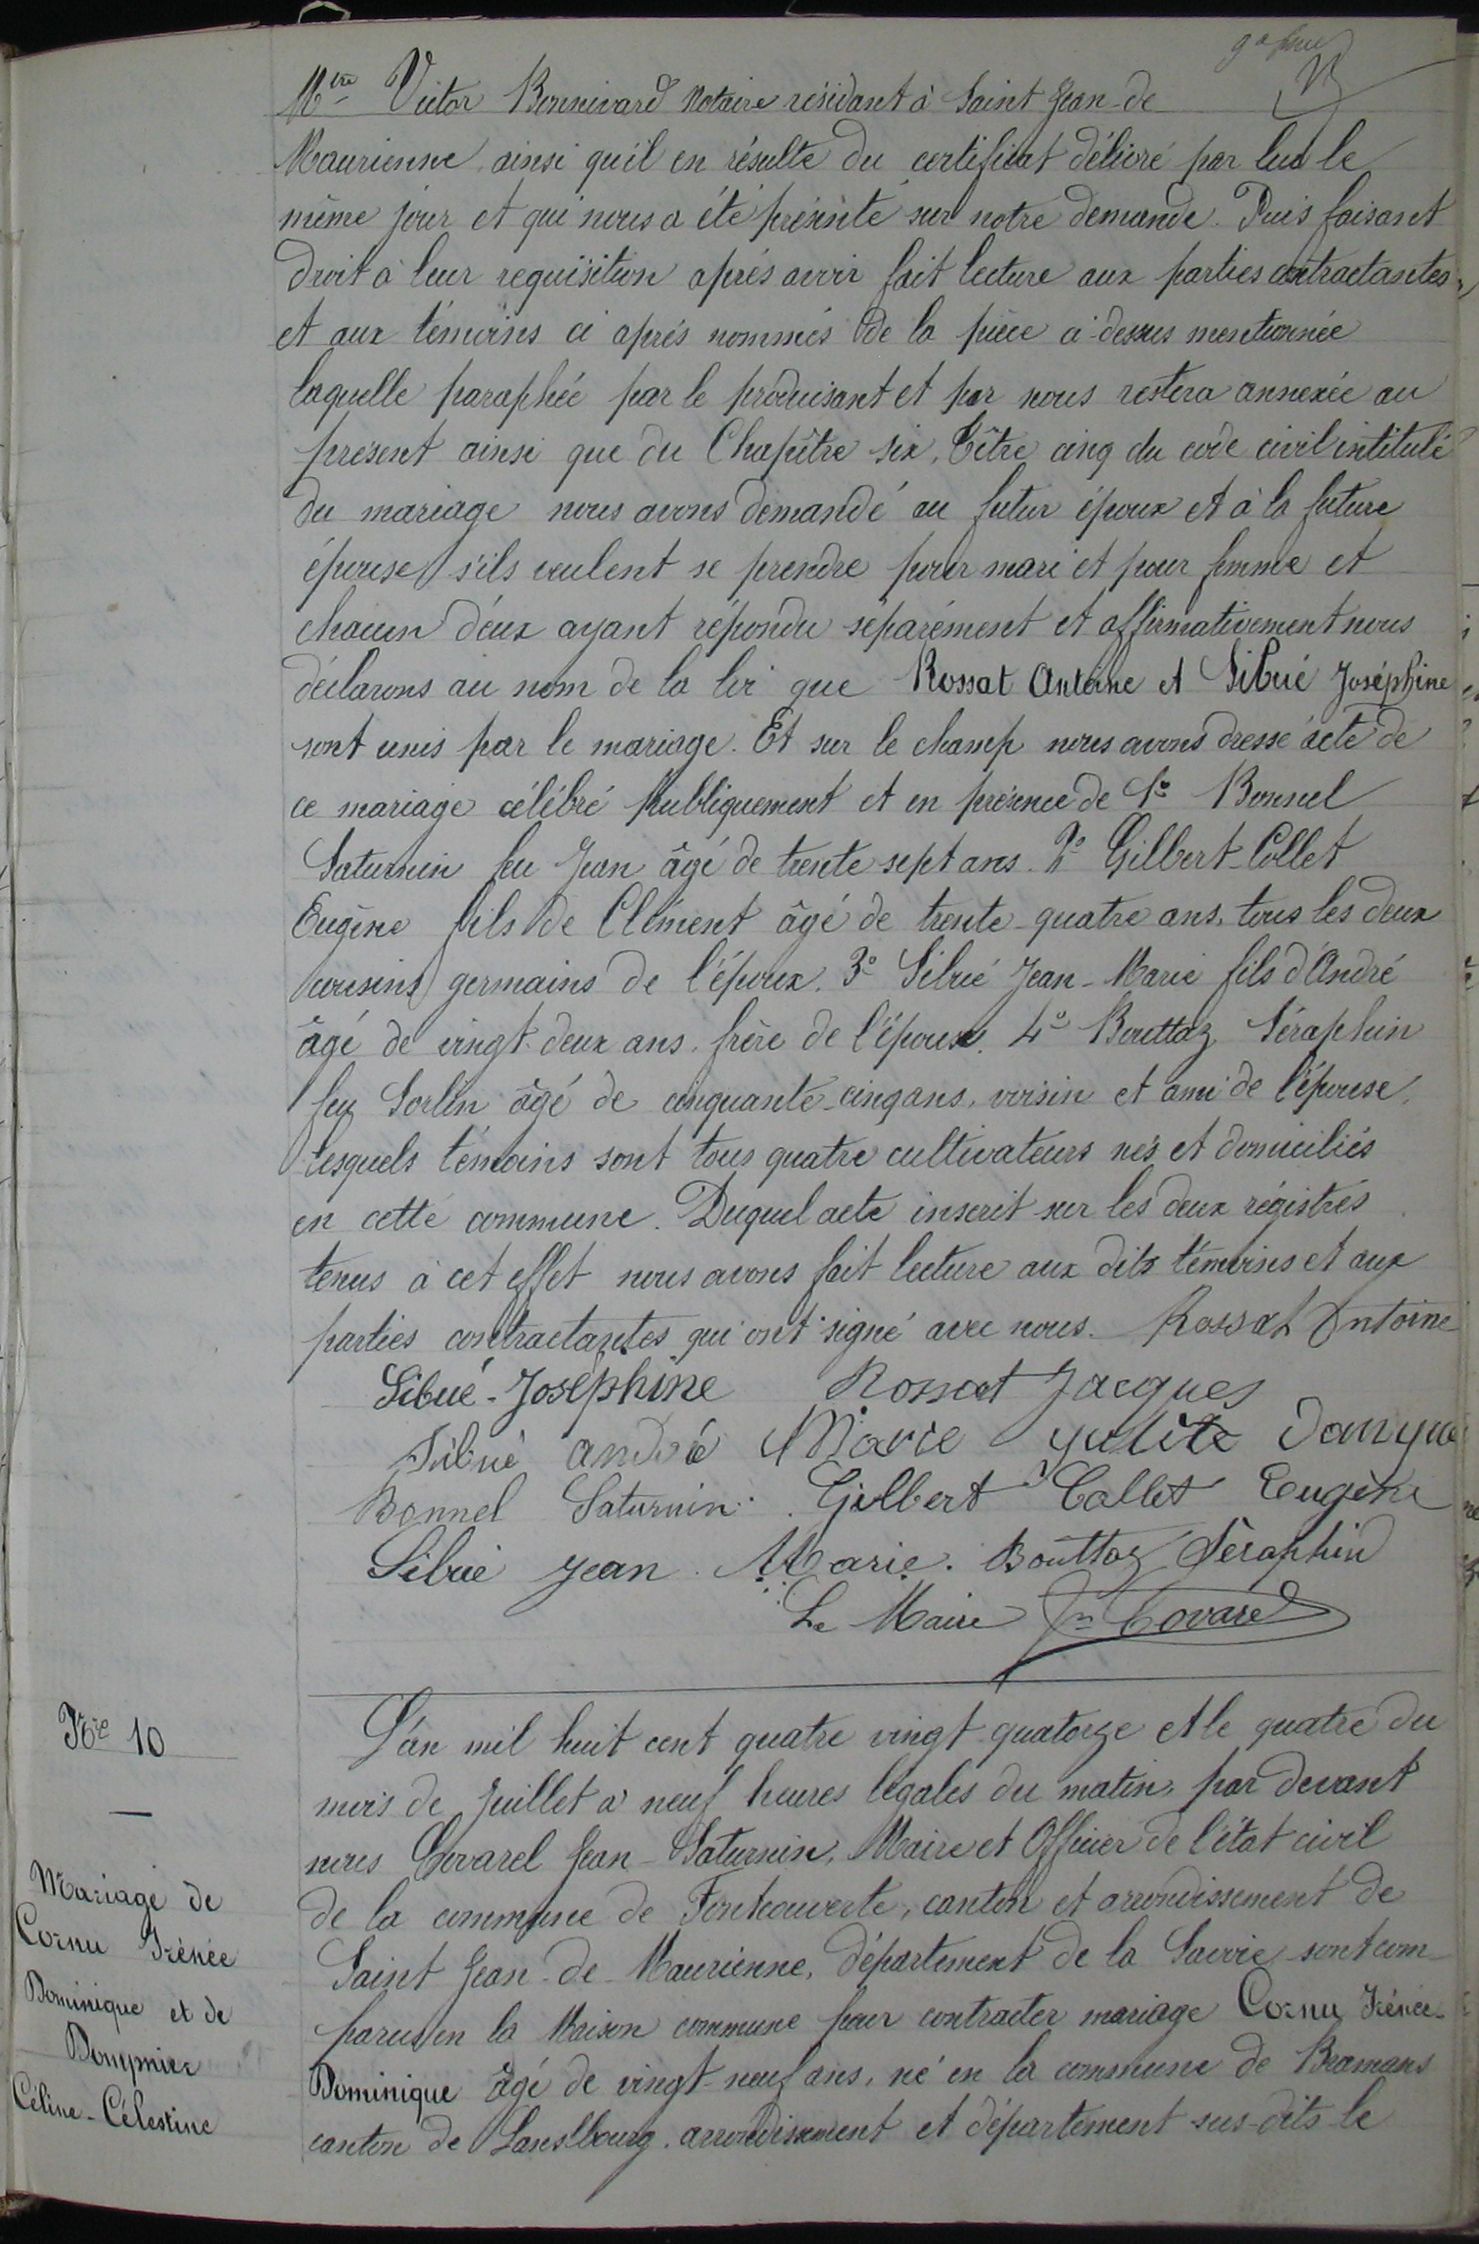 Mtre Victor Bonnivard Notaire résidant à Saint Jean-de
Maurienne, ainsi qu'il en résulte du certificat délivré par lui le
même jour et qui nous a été présenté sur notre demande. Puis faisant
droit à leur requisition aprés avoir fait lecture aux parties contractantes
et aux témoins ci aprés nommés de la pièce ci-dessus mentionnée
laquelle paraphée par le produisant et par nous restera annexée au
présent ainsi que du Chapître six, Tître cinq du code civil intitulé
du mariage nous avons demandé au futur époux et à la future
épouse s'ils veulent se prendre pour mari et pour femme et
chacun d'eux ayant répondu séparément et affirmativement nous
déclarons au nom de la loi que Rossat Antoine et Sibué Joséphine
sont unis par le mariage. Et sur le champ nous avons dressé acte de
ce mariage célébré publiquement et en présence de 1º Bonnel
Saturnin feu Jean âgé de trente sept ans. 2º Gilbert-Collet
Eugène fils de Clément âgé de trente-quatre ans, tous les deux
cousins germains de l'époux. 3º Sibué Jean-Marie fils d'André
âgé de vingt-deux ans, frère de l'épouse. 4º Bouttaz Séraphin
feu Sorlin âgé de cinquante-cinq ans, voisin et ami de l'épouse,
lesquels témoins sont tous quatre cultivateurs nés et domiciliés
en cette commune. Duquel acte inscrit sur les deux régistres
tenus à cet effet nous avons fait lecture aux dits témoins et aux
parties contractantes qui ont signé avec nous. Rossat Antoine
Sibué-Joséphine Rossat Jacques
Sibué andré Marie Julite
Bonnel Saturnin. Gilbert Collet Eugène
Sibué Jean Marie. Bouttaz Séraphin
Le Maire Jn Covarel
Nro 10
Mariage de
Cornu Irénée
Dominique et de
Dompnier
Céline-Célestine
L'an mil huit cent quatre vingt-quatorze et le quatre du
mois de Juillet à neuf heures légales du matin, par devant
nous Covarel Jean-Saturnin, Maire et Officier de l'état civil
de la commune de Fontcouverte, canton et arrondissement de
Saint Jean-de-Maurienne, département de la Savoie, sont com-
parus en la Maison commune pour contracter mariage Cornu Irénée-
Dominique âgé de vingt-neuf ans, né en la commune de Bramans
canton de Lanslbourg, arrondissement et département sus-dits le